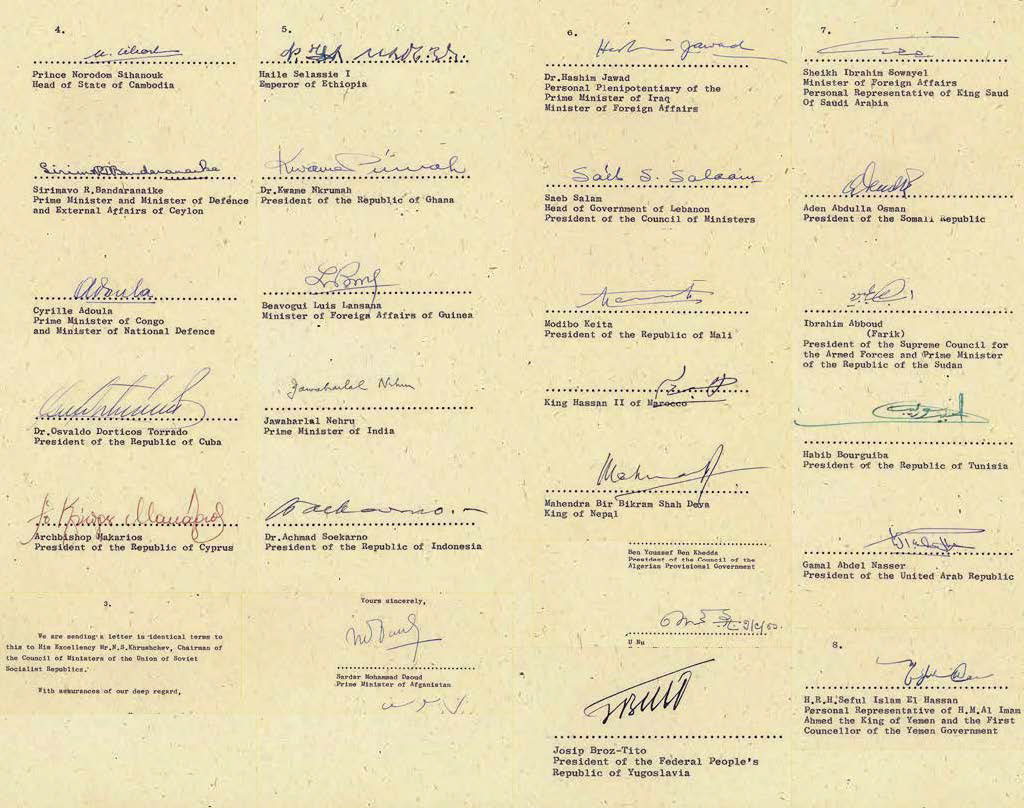 4.
Prince Norodom Sihanouk
Head of State of Cambodia
Sirimavo R.Bandaranaike
Sirimavo R.Bandaranaike
Prime Minister and Minister of Defence
and External Affairs of Ceylon
Adoula
Cyrille Adoula
Prime Minister of Congo
and Minister of National Defence
Dr.Osvaldo Dorticos Torrado
President of the Republic of Cuba
Archbishop Makarios
President of the Republic of Cyprus
3.
We are sending a letter in identical terms to
this to His Excellency Mr.N.S.Khrushchev, Chairman of
the Council of Ministers of the Union of Soviet
Socialist Republics.
With assurances of our deep regard,
5.
Haile Selassie I
Emperor of Ethiopia
Kwame Nkrumah
Dr.Kwame Nkrumah
President of the Republic of Ghana
Beavogui Luis Lansana
Minister of Foreign Affairs of Guinea
Jawaharlal Nehru
Jawaharlal Nehru
Prime Minister of India
Soekarno
Dr.Achmad Soekarno
President of the Republic of Indonesia
Yours sincerely,
Sardar Mohammad Daoud
Prime Minister of Afganistan
6.
Hashim Jawad
Dr.Hashim Jawad
Personal Plenipotentiary of the
Prime Minister of Iraq
Minister of Foreign Affairs
Saeb S. Salaam
Saeb Salam
Head of Government of Lebanon
President of the Council of Ministers
Modibo Keita
President of the Republic of Mali
King Hassan II of Marocco
Mahendra Bir Bikram Shah Deva
King of Nepal
Ben Youssef Ben Khedda
President of the Council of the
Algerian Provisional Government
U Nu
Josip Broz-Tito
President of the Federal People's
Republic of Yugoslavia
7.
Sheikh Ibrahim Sowayel
Minister of Foreign Affairs
Personal Representative of King Saud
Of Saudi Arabia
Aden Abdulla Osman
President of the Somali Republic
Ibrahim Abboud
(Farik)
President of the Supreme Council for
the Armed Forces and Prime Minister
of the Republic of the Sudan
Habib Bourguiba
President of the Republic of Tunisia
Gamal Abdel Nasser
President of the United Arab Republic
8.
H.R.H.Seful Islam El Hassan
Personal Representative of H.M.Al Imam
Ahmed the King of Yemen and the First
Councellor of the Yemen Government